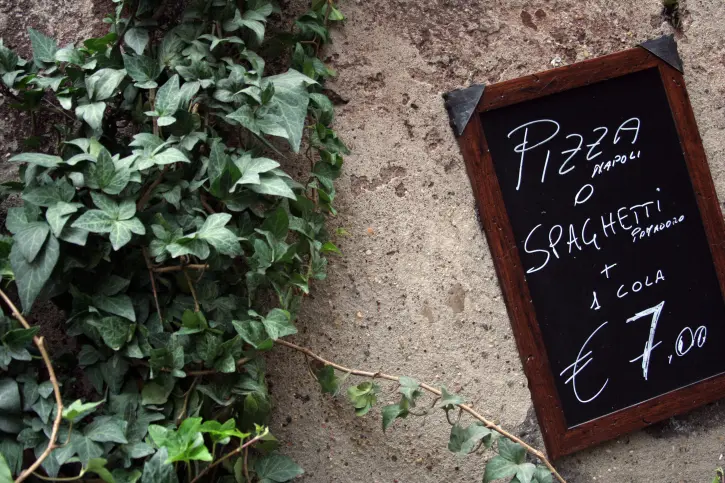 PIZZA
NAPOLI
O
SPAGHETTI
POMODORO
+
1 COLA
€ 7,00